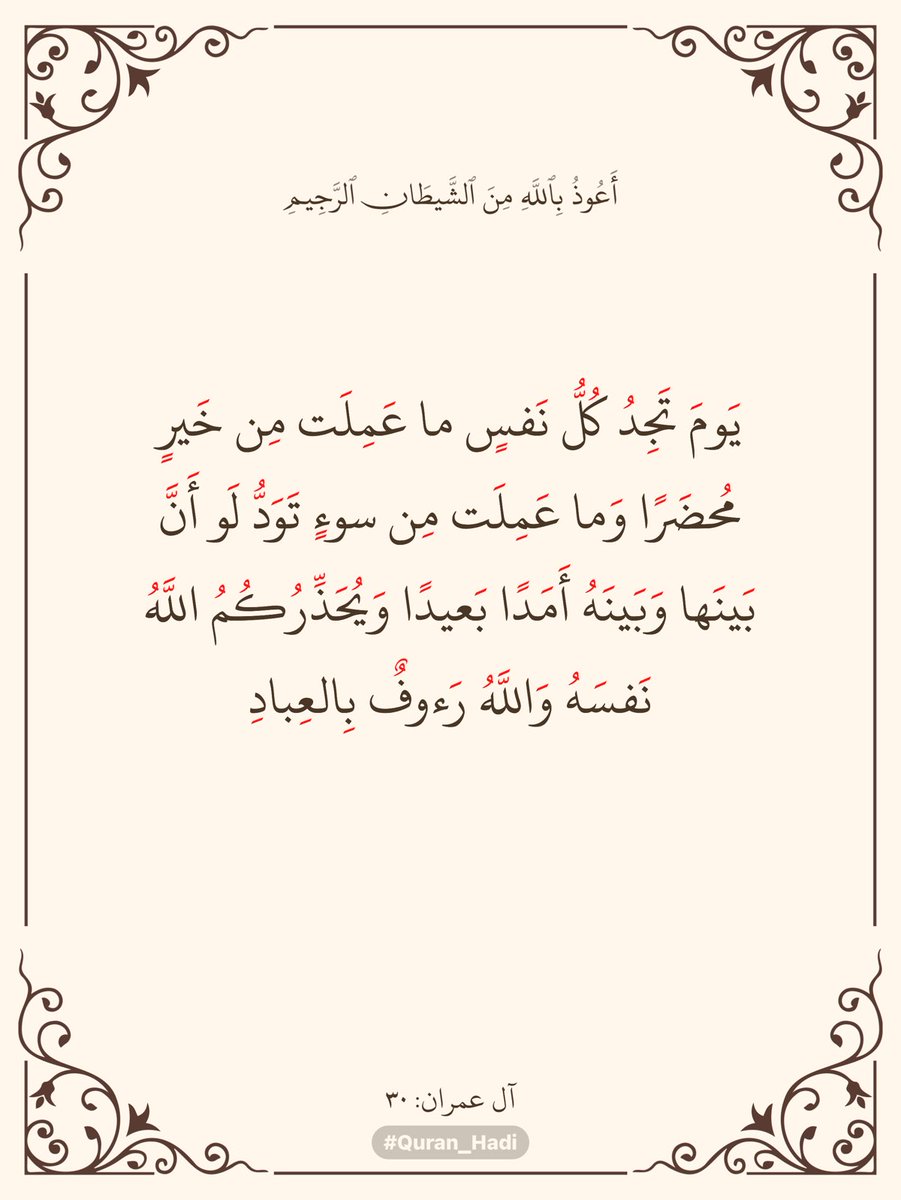 أَعُوذُ بِٱللَّهِ مِنَ ٱلشَّيطَانِ ٱلرَّجِيمِ
يَومَ تَجِدُ كُلُّ نَفسٍ ما عَمِلَت مِن خَيرٍ
مُحضَرًا وَما عَمِلَت مِن سوءٍ تَوَدُّ لَو أَنَّ
بَينَها وَبَينَهُ أَمَدًا بَعيدًا وَيُحَذِّرُكُمُ اللَّهُ
نَفسَهُ وَاللَّهُ رَءوفٌ بِالعِبادِ
آل عمران: ٣٠
#Quran_Hadi